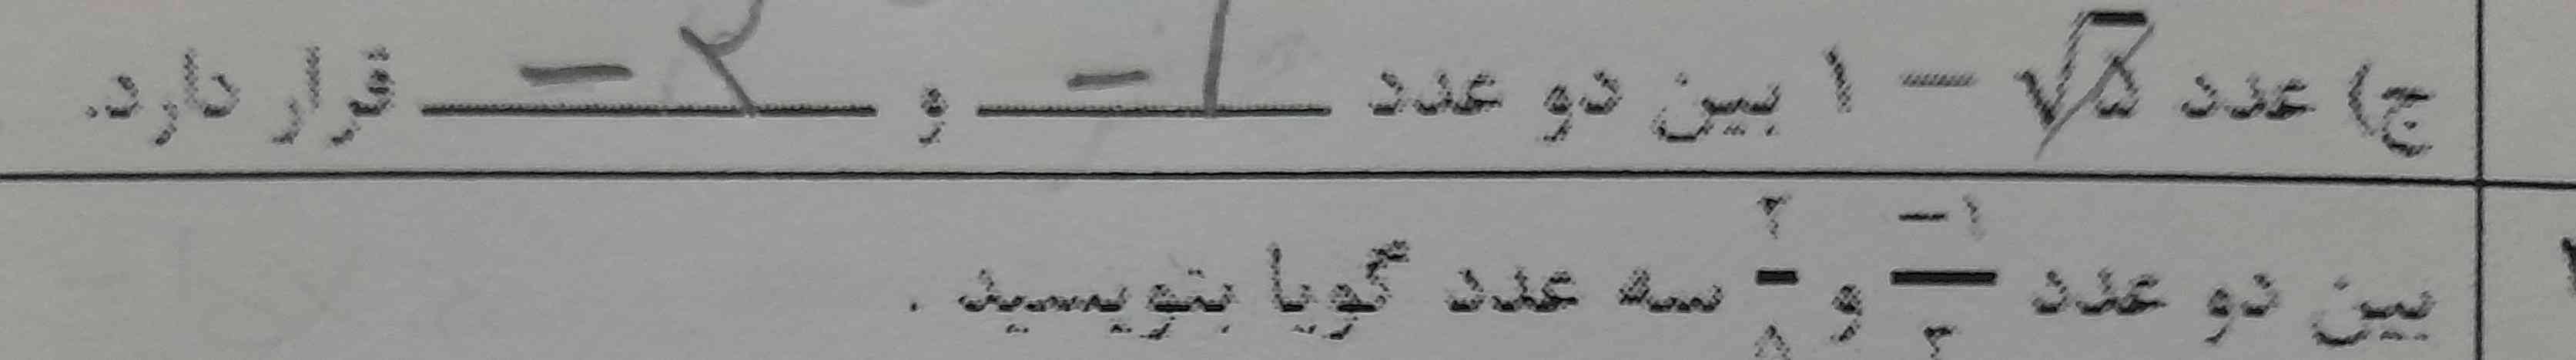 ج) عدد √۵ − ۱ بین دو عدد −۱ و −۲ قرار دارد.
بین دو عدد −۱/۳ و ۲/۵ سه عدد گویا بنویسید .